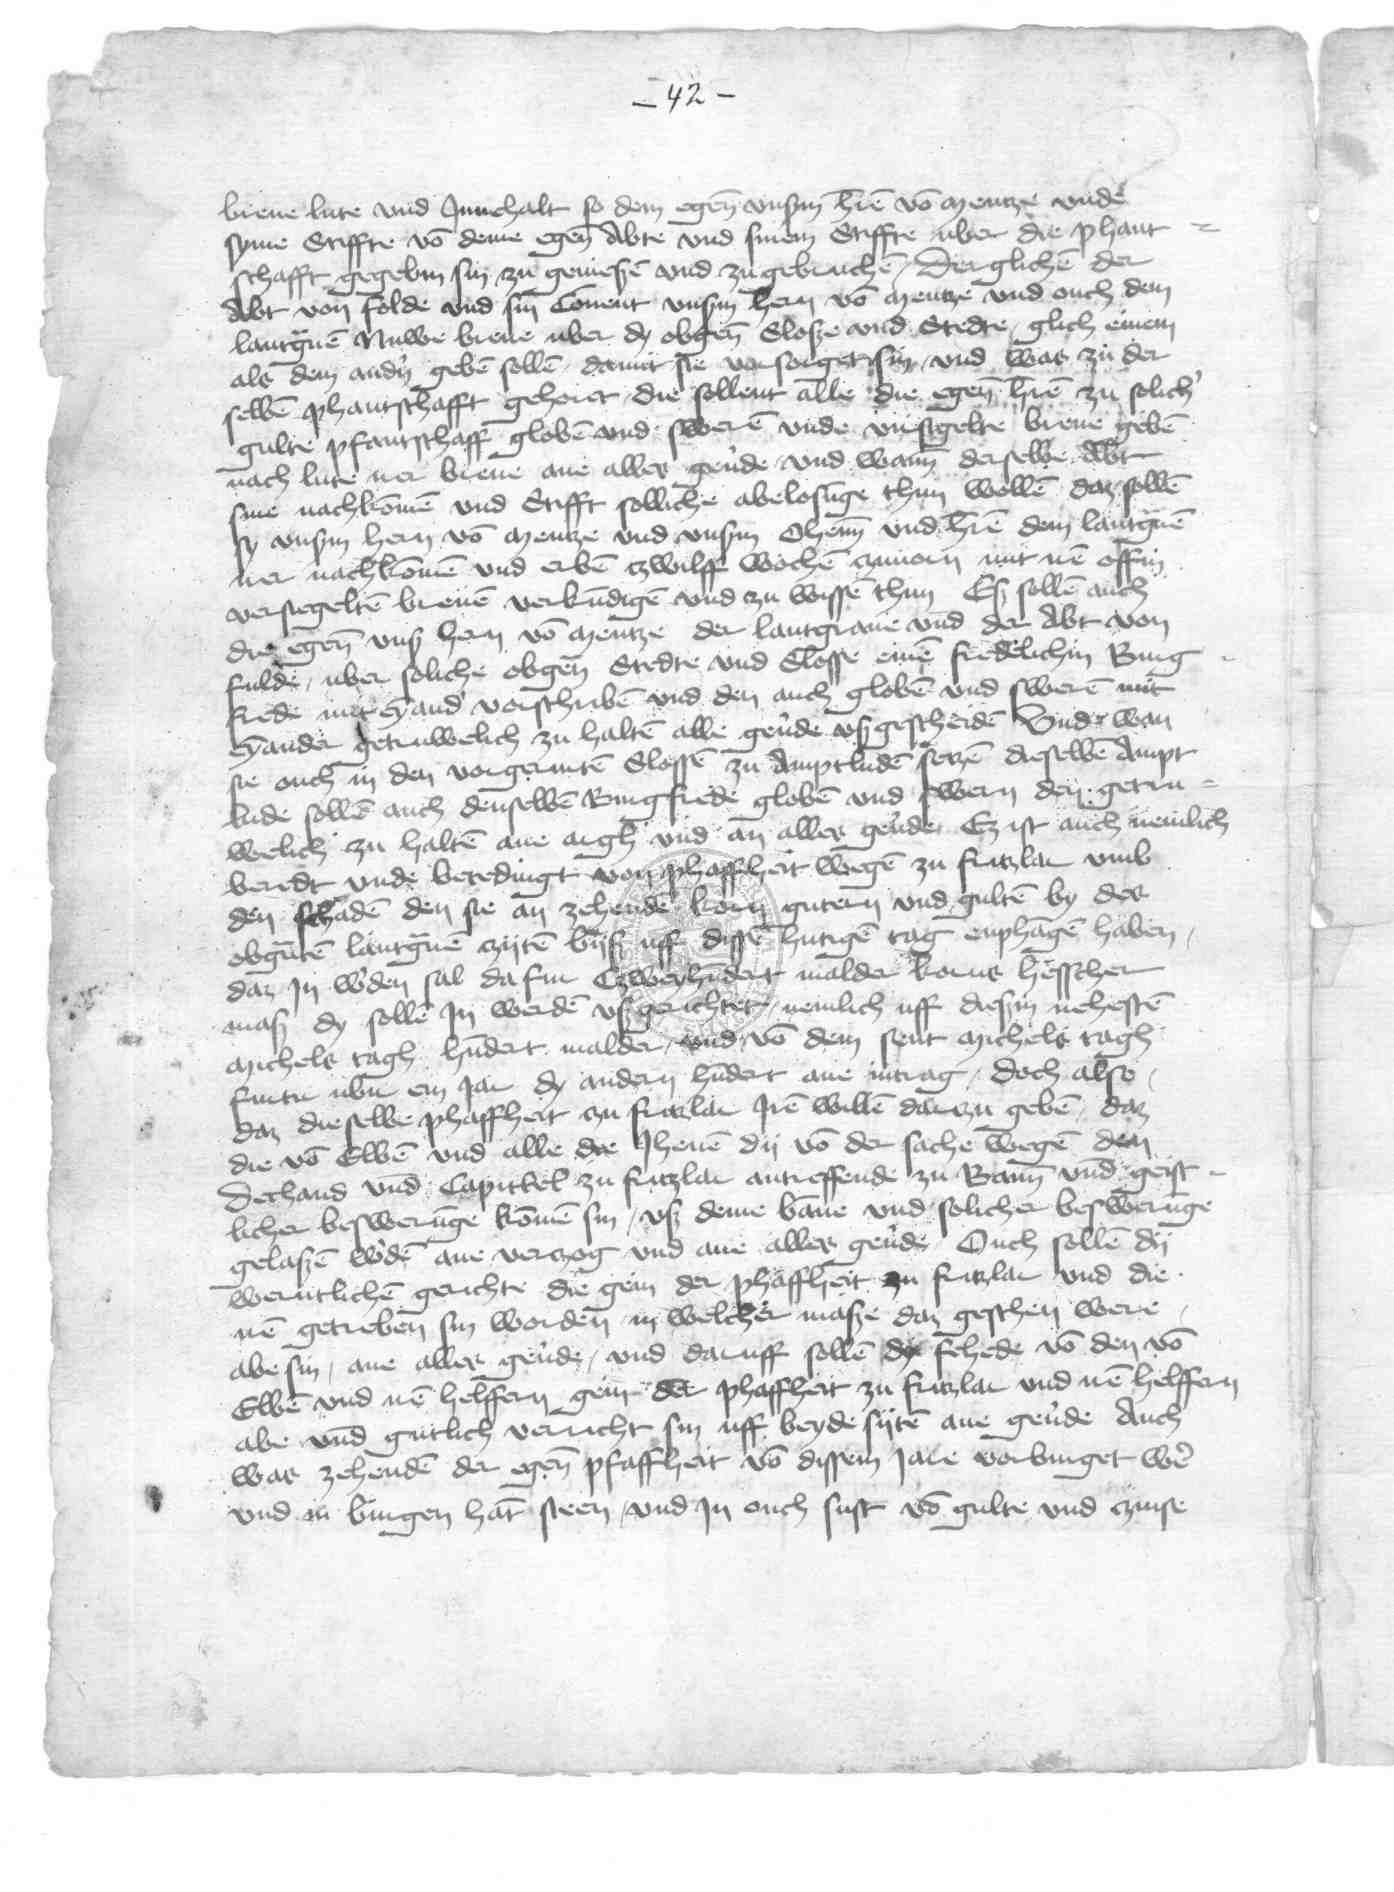 - 42 -
brieue lute vnd Innehalt so dem egen̄ vnsym̄ h'rē vō Mentze vnde
syme Stiffte vō deme egen̄ Abte vnd sinem Stiffte uber die phant=
schafft gegebin sin zu genieszē vnd zugebruchē / Derglichē der
Abt von folde vnd sin Conuent vnsym̄ hern vō Mentze vnd ouch dem
lantg'uē Nuwe brieue uber dy obgen̄ Slosze vnd Stedte / glich einem
als dem and'n gebē sollē / damit sie vorsorget sin / vnd was zu der
selbē phantschafft gehoret / die sollent alle die egen̄ h'rē zu solich'
gulte pfantschafft globē vnd swerē vnde vursigelte brieue gebē
nach lute irer brieue ane alles geu'de / vnd wann̄ derselbe Abt
sine nachkomē vnd Stifft solliche abelosūge thun wollē daz sollē
sy vnsym̄ hern vō Mentze vnd vnsym̄ Ohem̄ vnd h'rē dem lantg'uē
irer nachkomē vnd erbē zwilff wochē zuuorn mit irē offin
versiegeltē brieuē verkūdigē vnd zu wissē thun Esz sollē auch
die egen̄ vnsz hern vō Mentze der lantgraue vnd der Abt von
fulde / uber soliche obgen̄ Stedte vnd Slosse einē fredelichin Burg-
frede mit eynand' vorschribē vnd den auch globē vnd swerē mit
eynander getruwelich zu haltē alle geu'de vszgescheidē Vnd wan
sie ouch in den vorgerurtē Slossē zu Amptludē setzē dieselbē Ampt
lude sollē auch denselbē Burgfrede globē vnd swern den getru=
welich zu haltē ane argh vnd an alles geu'de Ez ist auch nemlich
beredt vnde beredingt von phaffheit wegē zu fritzlar vmb
den schadē den sie an zehendē korn gutern vnd gultē by des
obg'utē lantg'uē zytē bisz uff dissē hutigē tag enphāgē haben /
daz In w'den sal da fur Czweyhūdert malder korns hesscher
masz dy sollē In werdē vszgerichtet / nemlich uff diesyn nehestē
Michels tagh hūdert malder / vnd vō dem sent Michels tagh
furt ubir ein Jar dy andern hūdert ane intrag / doch also /
daz dieselbe phaffheit zu fritzlar Irē willē darzu gebē / daz
die vō Elbē vnd alle die Jhenē dij vō der sache wegē den
Dechand vnd Capittel zu fritzlar antreffende zu Bann̄ vnd geist-
licher beswerūge komē sin / vsz deme bāne vnd solicher beswerūge
gelaszē w'dē ane verzog vnd ane alles geu'de / Ouch sollē dij
werntlichē gerichte die gein der phaffheit zu fritzlar vnd die
irē getrebē sin worden in welcher masze daz geschen were /
abe sin / ane alles geu'de / vnd daruff sollē dy fehede vō den vō
Elbē vnd irē helffern gein der phaffheit zu fritzlar vnd irē helffern
abe vnd gutlich verricht sin uff beyde sijtē ane geu'de Auch
was zehendē der egen̄ pfaffheit vō dissem Jare vorburget wer'
vnd in burgen hāt steen / vnd In ouch sust vō gulte vnd zinse